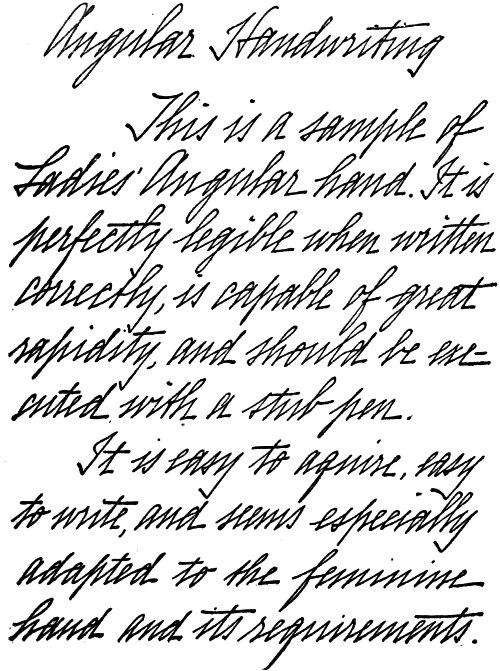 Angular Handwriting
This is a sample of
Ladies' Angular hand. It is
perfectly legible when written
correctly, is capable of great
rapidity, and should be exe=
cuted with a stub pen.
It is easy to aquire, easy
to write, and seems especially
adapted to the feminine
hand and its requirements.